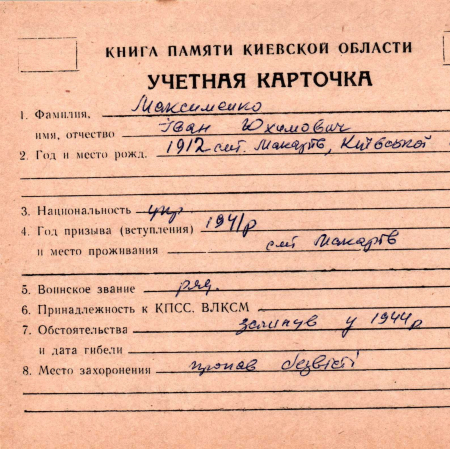 КНИГА ПАМЯТИ КИЕВСКОЙ ОБЛАСТИ
УЧЕТНАЯ КАРТОЧКА
1. Фамилия, Максименко
имя, отчество Іван Юхимович
2. Год и место рожд. 1912 смт. Макарів, Київської
3. Национальность укр.
4. Год призыва (вступления) 1941 р
и место проживания смт Макарів
5. Воинское звание ряд.
6. Принадлежность к КПСС, ВЛКСМ
7. Обстоятельства загинув у 1944 р
и дата гибели
8. Место захоронения пропав безвісті